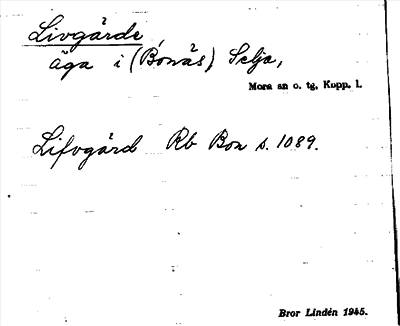 Livgårde,
äga i (Bonäs) Selja,
Mora sn o. tg, Kopp. l.
Lifvgård Rb Bon s. 1089.
Bror Lindén 1945.